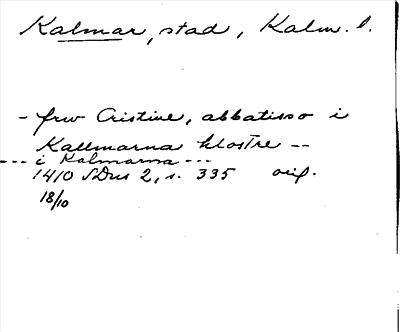 Kalmar, stad, Kalm. l.
- frw Cristine, abbatisso i
Kallmarna klostre --
--- i Kalmarna ---
1410 SDns 2, s. 335 orig.
18/10